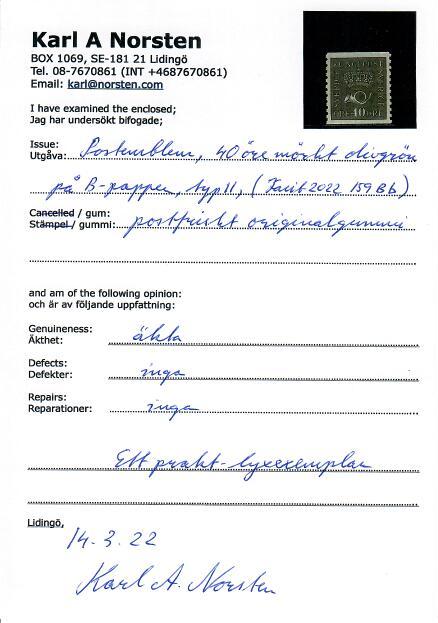 Karl A Norsten
BOX 1069, SE-181 21 Lidingö
Tel. 08-7670861 (INT +4687670861)
Email: karl@norsten.com
I have examined the enclosed;
Jag har undersökt bifogade;
Issue:
Utgåva: Postemblem, 40 öre mörkt olivgrön
på B-papper, typ II, (Facit 2022 159Bb)
Cancelled / gum:
Stämpel / gummi: postfriskt originalgummi
and am of the following opinion:
och är av följande uppfattning:
Genuineness:
Äkthet: äkta
Defects:
Defekter: inga
Repairs:
Reparationer: inga
Ett prakt-lyxexemplar
Lidingö,
14.3.22
Karl A. Norsten